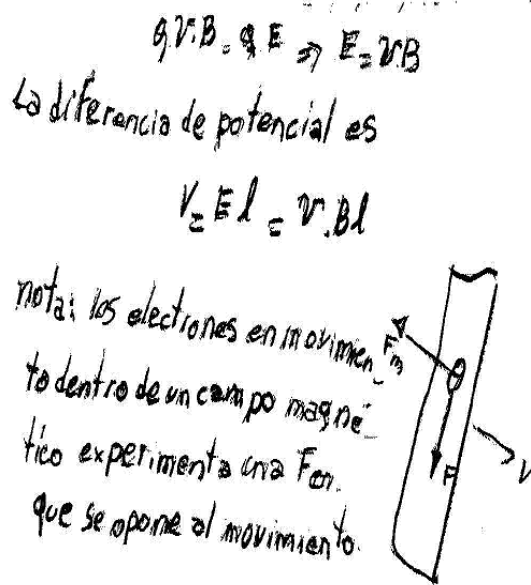 qv.B = qE ⇒ E = vB
La diferencia de potencial es
V = El = v.Bl
nota: los electrones en movimien_
to dentro de un campo magné-
tico experimenta una Fm.
que se opone al movimiento.
Fm
F
V